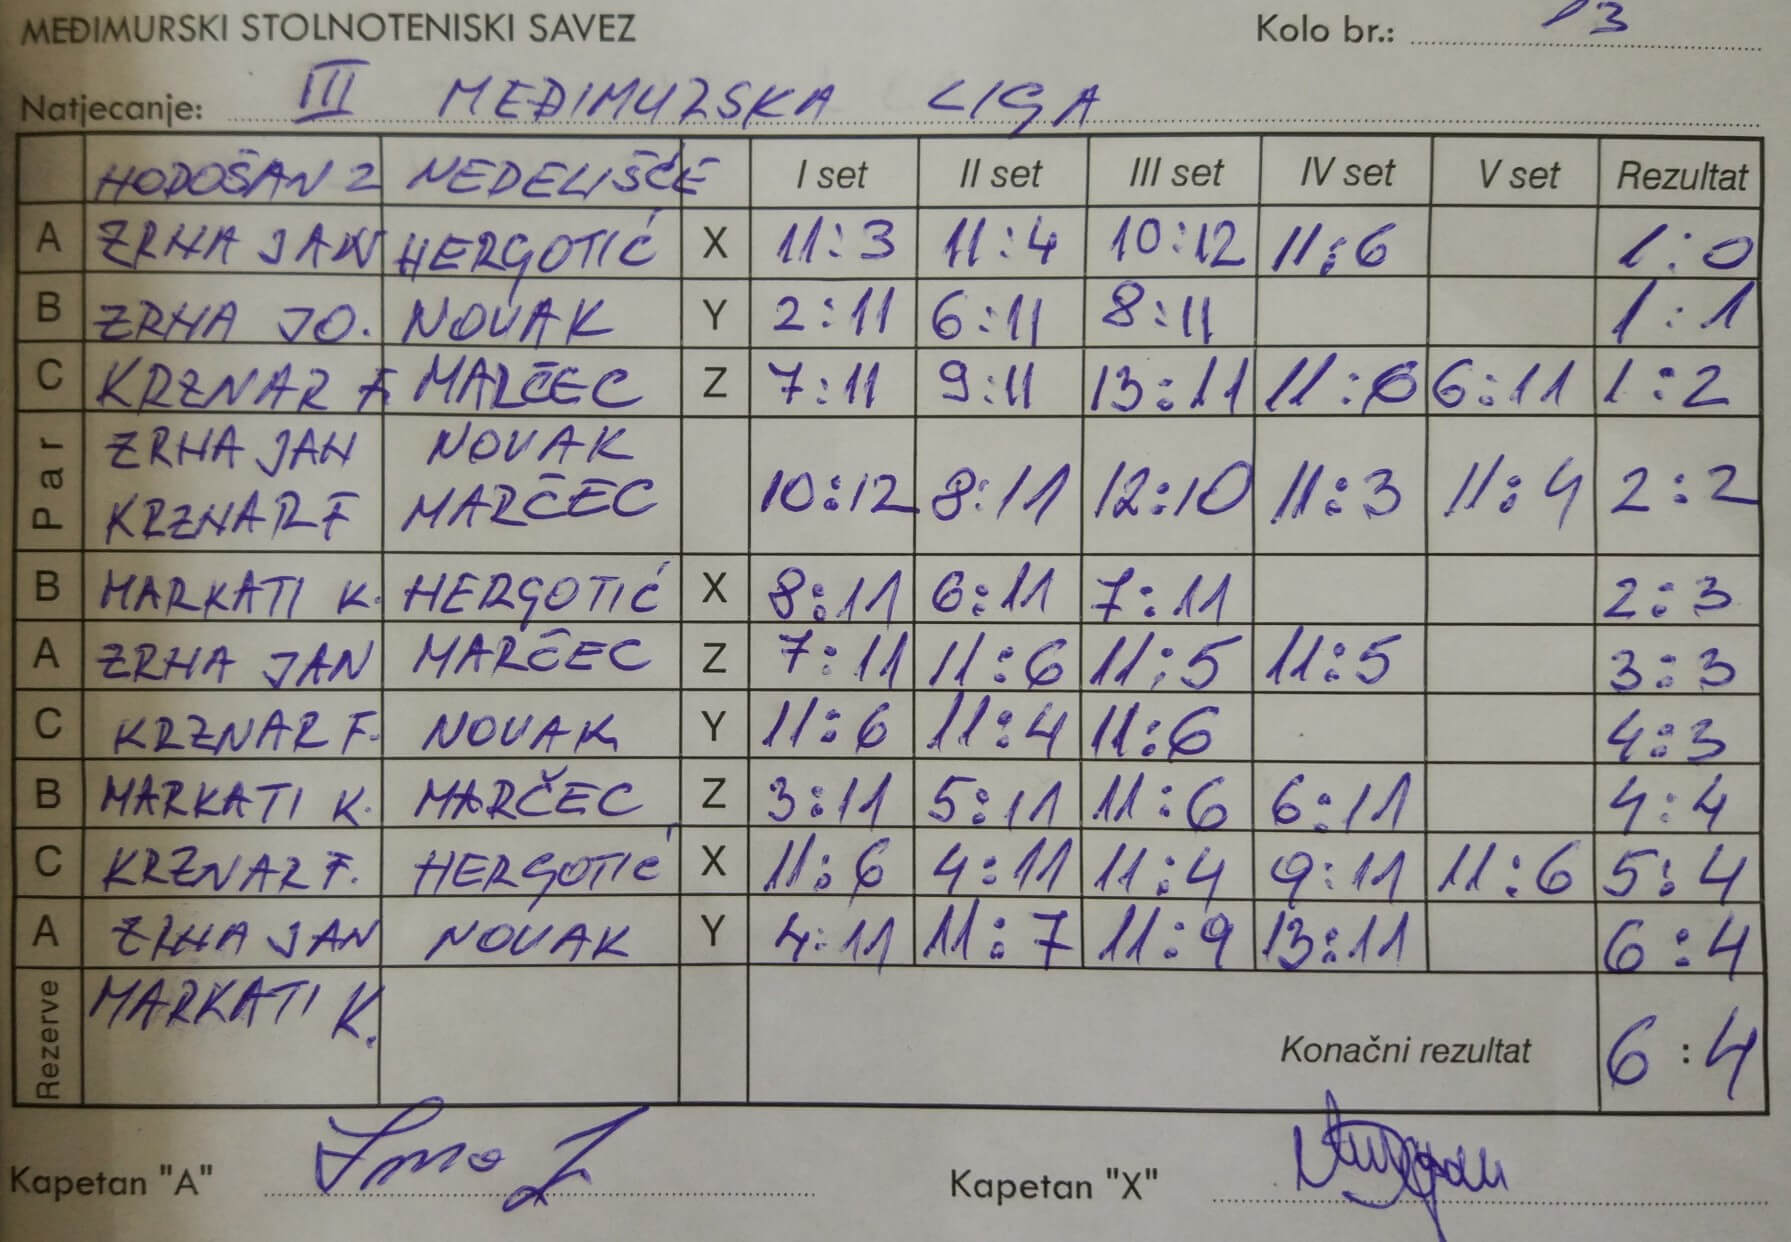 MEĐIMURSKI STOLNOTENISKI SAVEZ Kolo br.: 13
Natjecanje: III MEĐIMURSKA LIGA
HODOŠAN 2 NEDELIŠĆE I set II set III set IV set V set Rezultat
A ZRNA JAN HERGOTIĆ X 11:3 11:4 10:12 11:6 1:0
B ZRNA JO. NOVAK Y 2:11 6:11 8:11 1:1
C KRZNAR F MARČEC Z 7:11 9:11 13:11 11:6 6:11 1:2
Par ZRNA JAN NOVAK
KRZNAR F MARČEC 10:12 8:11 12:10 11:3 11:4 2:2
B MARKATI K. HERGOTIĆ X 8:11 6:11 7:11 2:3
A ZRNA JAN MARČEC Z 7:11 11:6 11:5 11:5 3:3
C KRZNAR F. NOVAK Y 11:6 11:4 11:6 4:3
B MARKATI K. MARČEC Z 3:11 5:11 11:6 6:11 4:4
C KRZNAR F. HERGOTIĆ X 11:6 4:11 11:4 9:11 11:6 5:4
A ZRNA JAN NOVAK Y 4:11 11:7 11:9 13:11 6:4
Rezerve MARKATI K. Konačni rezultat 6:4
Kapetan "A" Kapetan "X"